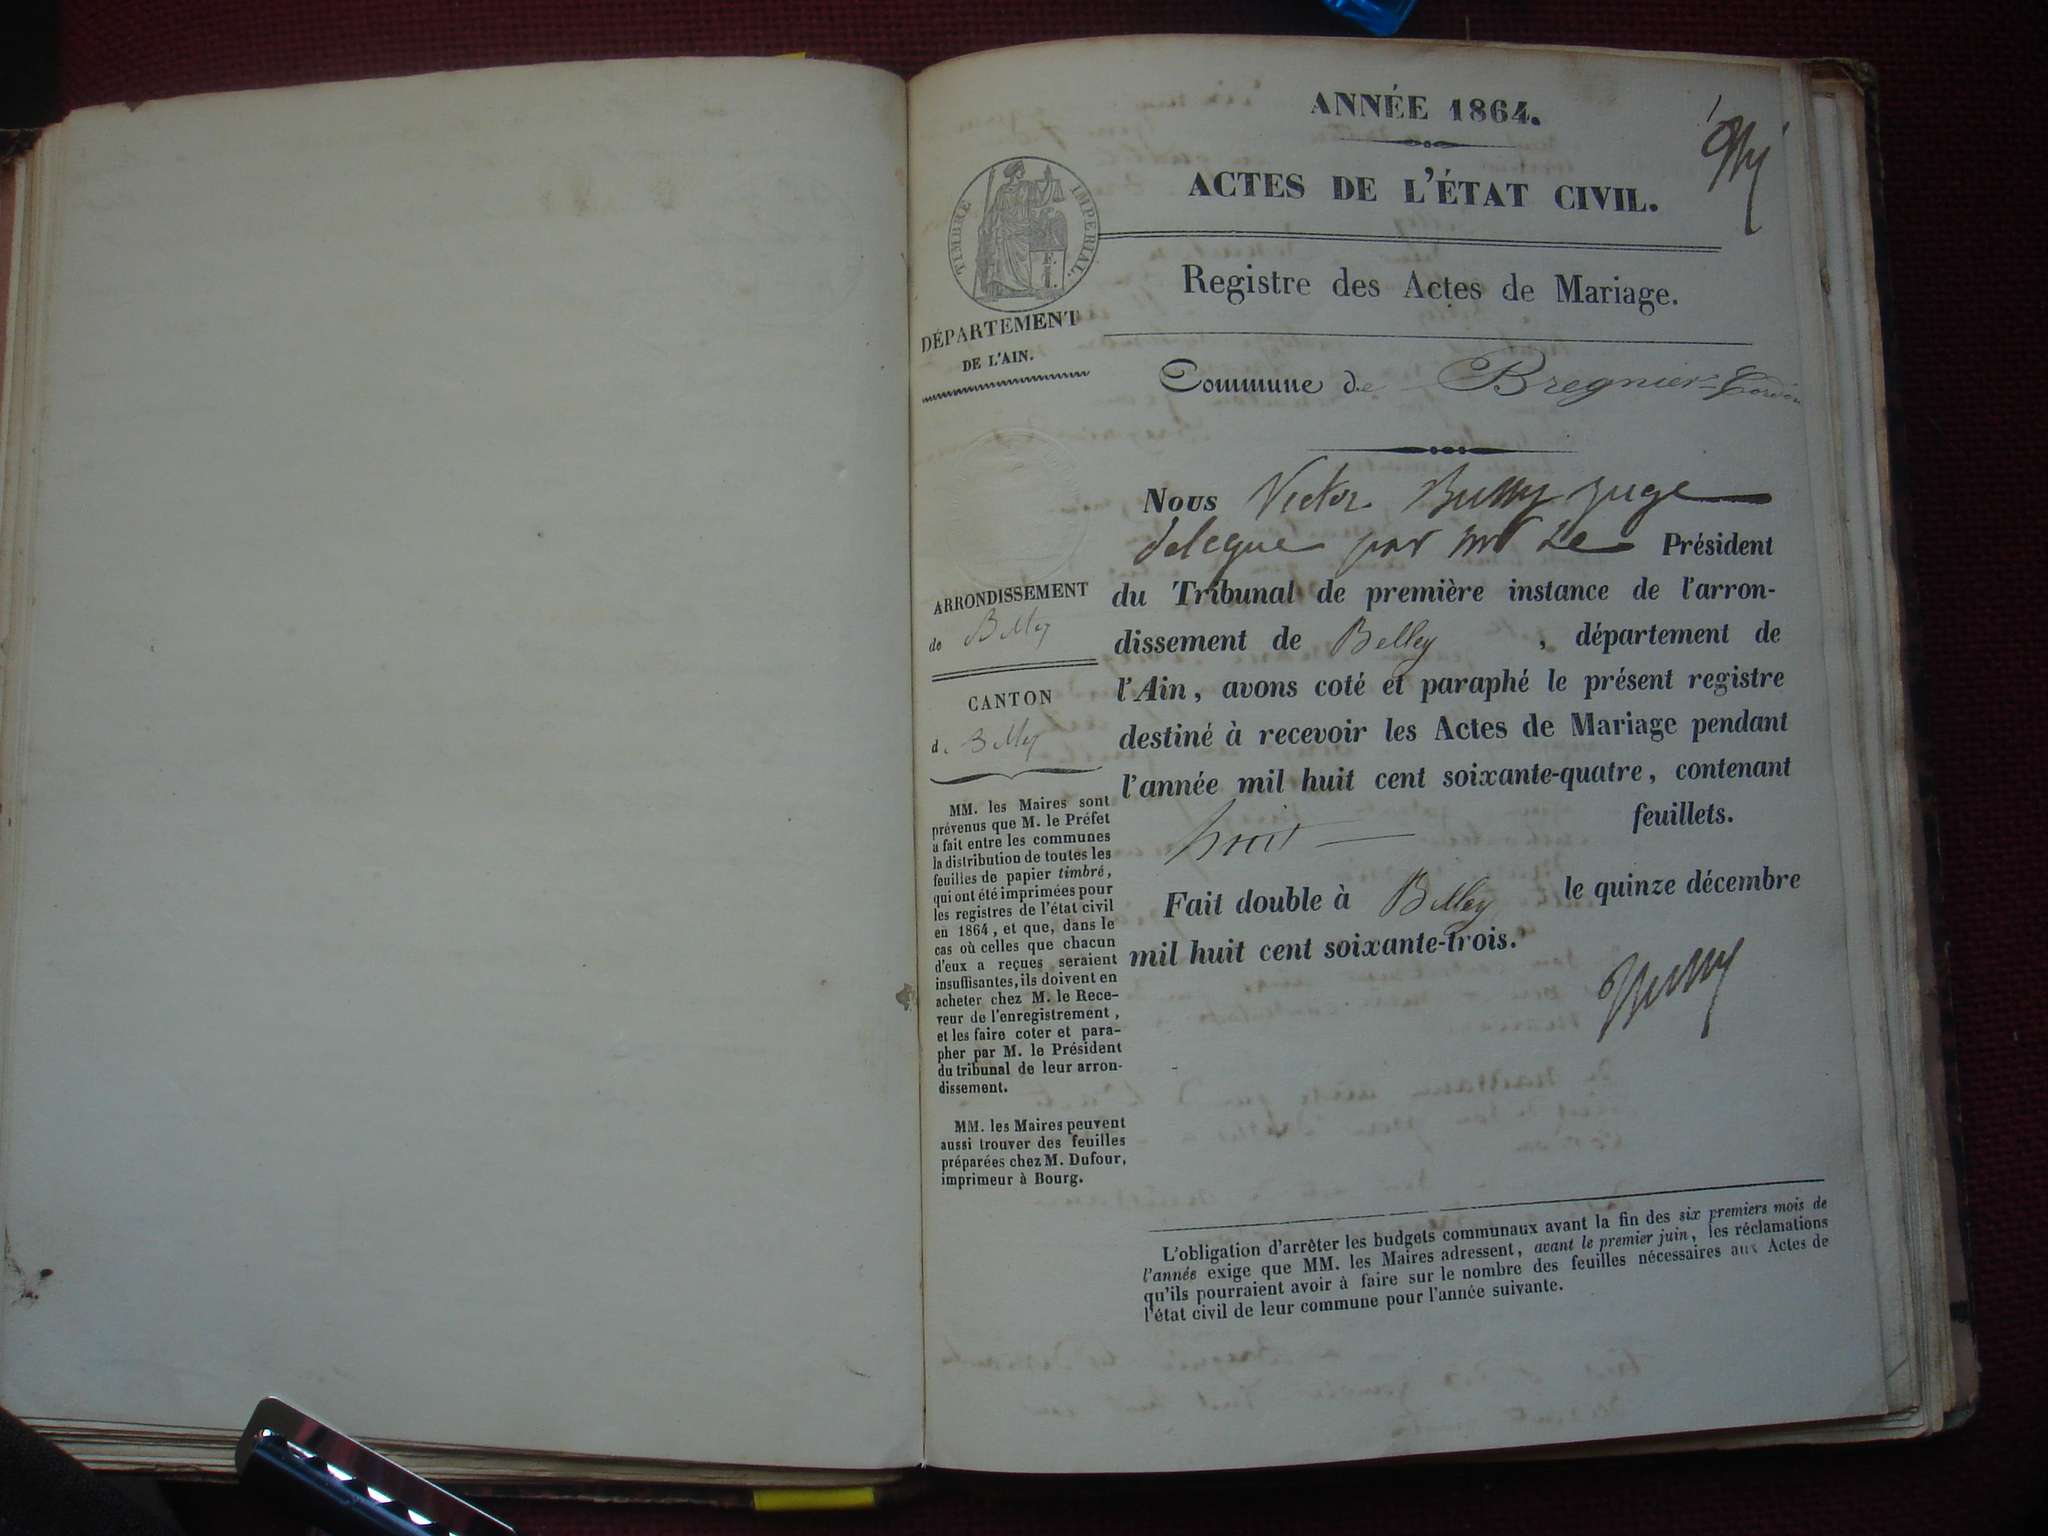 ANNÉE 1864.
ACTES DE L'ÉTAT CIVIL.
TIMBRE IMPERIAL.
Registre des Actes de Mariage.
DÉPARTEMENT
DE L'AIN.
Commune de Bregnier-Cordon
Nous Victor Bussy juge
délégué par mr Le Président
du Tribunal de première instance de l'arron-
dissement de Belley, département de
l'Ain, avons coté et paraphé le présent registre
destiné à recevoir les Actes de Mariage pendant
l'année mil huit cent soixante-quatre, contenant
huit feuillets.
Fait double à Belley le quinze décembre
mil huit cent soixante-trois.
Bussy
ARRONDISSEMENT
de Belley
CANTON
de Belley
MM. les Maires sont
prévenus que M. le Préfet
a fait entre les communes
la distribution de toutes les
feuilles de papier timbré,
qui ont été imprimées pour
les registres de l'état civil
en 1864, et que, dans le
cas où celles que chacun
d'eux a reçues seraient
insuffisantes, ils doivent en
acheter chez M. le Rece-
veur de l'enregistrement,
et les faire coter et para-
pher par M. le Président
du tribunal de leur arron-
dissement.
MM. les Maires peuvent
aussi trouver des feuilles
préparées chez M. Dufour,
imprimeur à Bourg.
L'obligation d'arrêter les budgets communaux avant la fin des six premiers mois de
l'année exige que MM. les Maires adressent, avant le premier juin, les réclamations
qu'ils pourraient avoir à faire sur le nombre des feuilles nécessaires aux Actes de
l'état civil de leur commune pour l'année suivante.